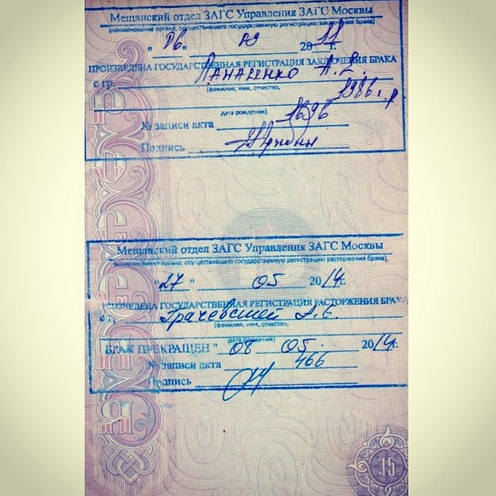 Мещанский отдел ЗАГС Управления ЗАГС Москвы
(наименование органа, осуществившего государственную регистрацию заключения брака)
" 06 " 09 2011
ПРОИЗВЕДЕНА ГОСУДАРСТВЕННАЯ РЕГИСТРАЦИЯ ЗАКЛЮЧЕНИЯ БРАКА
с гр. Панасенко А.
(фамилия, имя, отчество,
1986г.р
дата рождения)
№ записи акта 1696
Подпись
Мещанский отдел ЗАГС Управления ЗАГС Москвы
(наименование органа, осуществившего государственную регистрацию расторжения брака)
"27" 05 2014г.
ПРОИЗВЕДЕНА ГОСУДАРСТВЕННАЯ РЕГИСТРАЦИЯ РАСТОРЖЕНИЯ БРАКА
с гр.
(фамилия, имя, отчество,
дата рождения)
БРАК ПРЕКРАЩЕН " 08 05. 2014г.
№ записи акта 466
Подпись
15